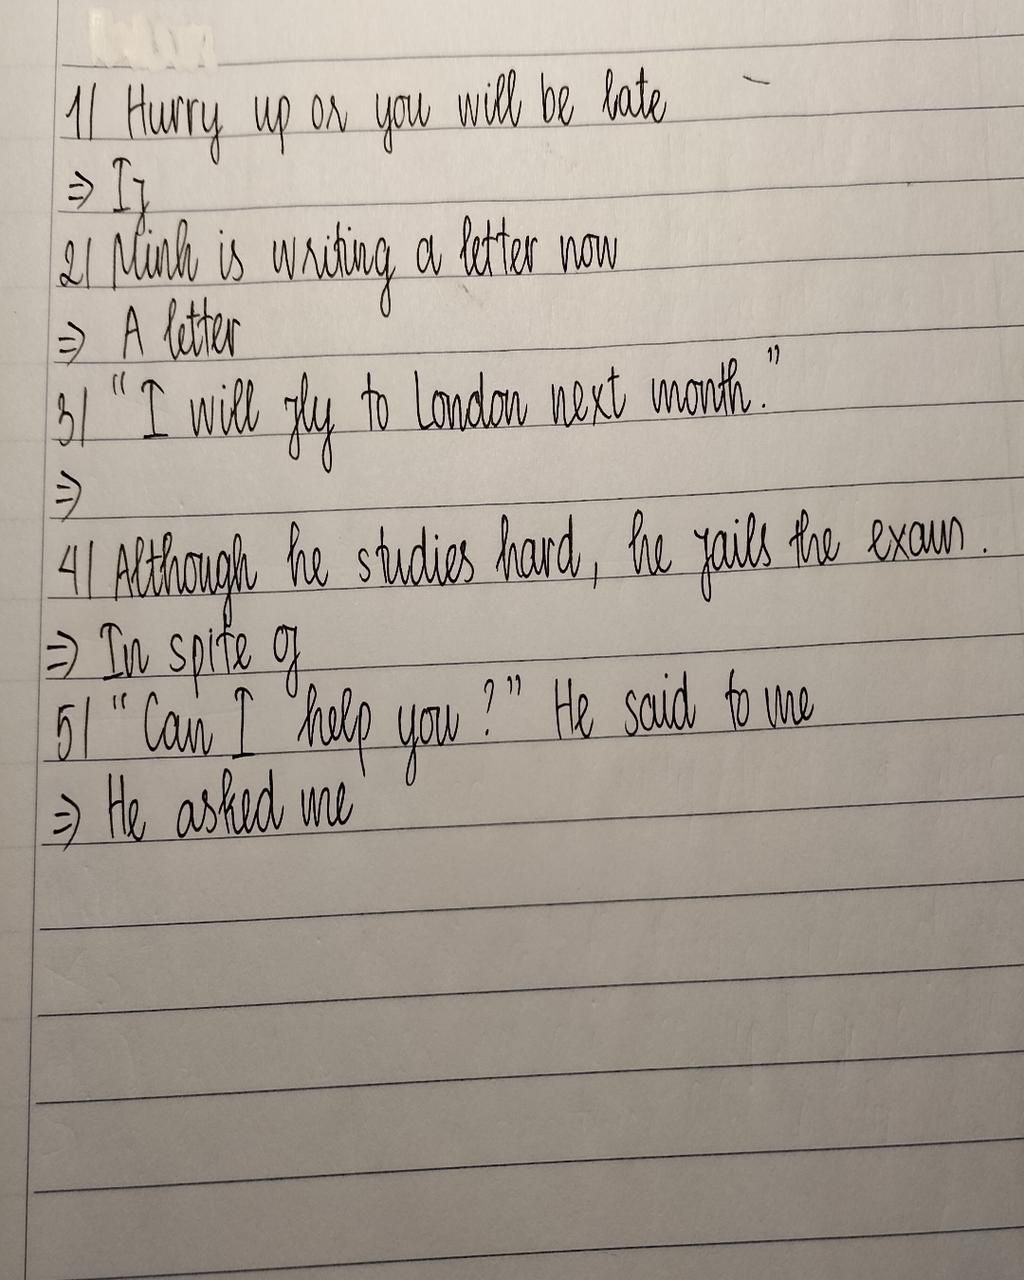 1/ Hurry up or you will be late
⇒ If
2/ Minh is writing a letter now
⇒ A letter
3/ "I will fly to London next month."
⇒
4/ Although he studies hard, he fails the exam.
⇒ In spite of
5/ "Can I help you?" He said to me
⇒ He asked me